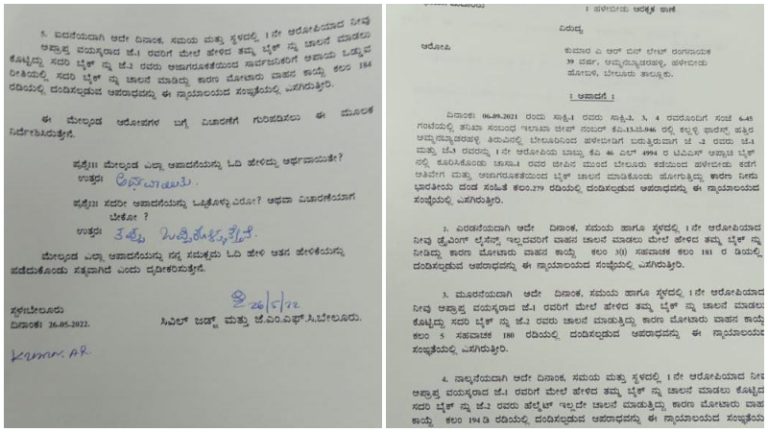 5. ಐದನೆಯದಾಗಿ ಆದೇ ದಿನಾಂಕ, ಸಮಯ ಮತ್ತು ಸ್ಥಳದಲ್ಲಿ 1 ನೇ ಆರೋಪಿಯಾದ ನೀವು
ಅಪ್ರಾಪ್ತ ವಯಸ್ಕರಾದ ಜೆ-1 ರವರಿಗೆ ಮೇಲೆ ಹೇಳಿದ ತಮ್ಮ ಬೈಕ್ ನ್ನು ಚಾಲನೆ ಮಾಡಲು
ಕೊಟ್ಟಿದ್ದು ಸದರಿ ಬೈಕ್ ನ್ನು ಜೆ-2 ರವರು ಅಜಾಗರೂಕತೆಯಿಂದ ಸಾರ್ವಜನಿಕರಿಗೆ ಅಪಾಯ ಒಡ್ಡುವ
ರೀತಿಯಲ್ಲಿ ಸದರಿ ಬೈಕ್ ನ್ನು ಚಾಲನೆ ಮಾಡಿದ್ದು ಕಾರಣ ಮೋಟಾರು ವಾಹನ ಕಾಯ್ದೆ ಕಲಂ 184
ರಡಿಯಲ್ಲಿ ದಂಡಿಸಲ್ಪಡುವ ಆಪರಾಧವನ್ನು ಈ ನ್ಯಾಯಾಲಯದ ಸಂಜ್ಞೆತೆಯಲ್ಲಿ ಎಸಗಿರುತ್ತೀರಿ.
ಈ ಮೇಲ್ಕಂಡ ಆರೋಪಗಳ ಬಗ್ಗೆ ವಿಚಾರಣೆಗೆ ಗುರಿಪಡಿಸಲು ಈ ಮೂಲಕ
ನಿರ್ದೇಶಿಸಿರುತ್ತೇನೆ.
ಪ್ರಶ್ನೆ:1: ಮೇಲ್ಕಂಡ ಎಲ್ಲಾ ಆಪಾದನೆಯನ್ನು ಓದಿ ಹೇಳಿದ್ದು ಅರ್ಥವಾಯಿತೇ?
ಉತ್ತರ: ಅರ್ಥವಾಯಿತು.
ಪ್ರಶ್ನೆ:2: ಸದರೀ ಆಪಾದನೆಯನ್ನು ಒಪ್ಪಿಕೊಳ್ಳುವಿರೋ? ಅಥವಾ ವಿಚಾರಣೆಯಾಗ
ಬೇಕೋ ?
ಉತ್ತರ: ತಪ್ಪು ಒಪ್ಪಿಕೊಳ್ಳುತ್ತೇನೆ
ಮೇಲ್ಕಂಡ ಎಲ್ಲಾ ಆಪಾದನೆಯನ್ನು ನನ್ನ ಸಮಕ್ಷಮ ಓದಿ ಹೇಳಿ ಆತನ ಹೇಳಿಕೆಯನ್ನು
ಪಡೆದುಕೊಂಡು ಸತ್ಯವಾಗಿದೆ ಎಂದು ದೃಢೀಕರಿಸುತ್ತೇನೆ.
26/5/22
ಸ್ಥಳ:ಬೇಲೂರು
ದಿನಾಂಕ: 26-05-2022.
ಸಿವಿಲ್ ಜಡ್ಜ್ ಮತ್ತು ಜೆ.ಎಂ.ಎಫ್.ಸಿ.ಬೇಲೂರು.
Kumar. AR
ಹಳೇಬೀಡು ಆರಕ್ಷಕ ಠಾಣೆ
ವಿರುದ್ಧ
ಆರೋಪಿ : ಕುಮಾರ ಎ ಆರ್ ಬಿನ್ ಲೇಟ್ ರಂಗನಾಯಕ
39 ವರ್ಷ, ಅಮ್ಮನಬ್ಯಾಡರಹಳ್ಳಿ, ಹಳೇಬೀಡು
ಹೋಬಳಿ, ಬೇಲೂರು ತಾಲ್ಲೂಕು.
: ಆಪಾದನೆ :
ದಿನಾಂಕ: 06-09-2021 ರಂದು ಸಾಕ್ಷಿ-1 ರವರು ಸಾಕ್ಷಿ-2, 3, 4 ರವರೊಂದಿಗೆ ಸಂಜೆ 6-45
ಗಂಟೆಯಲ್ಲಿ ತನಿಖಾ ಸಂಬಂಧ ಇಲಾಖಾ ಜೀಪ್ ನಂಬರ್ ಕೆಎ-13-ಜಿ-946 ರಲ್ಲಿ ಕಲ್ಲಳ್ಳಿ ಫಾರೆಸ್ಟ್ ಹತ್ತಿರ
ಅಮ್ಮನಬ್ಯಾಡರಹಳ್ಳಿ ತಿರುವಿನಲ್ಲಿ ಬೇಲೂರಿನಿಂದ ಹಳೇಬೀಡಿಗೆ ಬರುತ್ತಿರುವಾಗ ಜೆ -2 ರವರು ಜೆ-1
ಮತ್ತು ಜೆ-3 ರವರನ್ನು 1 ನೇ ಆರೋಪಿಯ ಬಾಬ್ತು ಕೆಎ 46 ಎಲ್ 4994 ರ ಟಿವಿಎಸ್ ಅಪ್ಪಾಚಿ ಬೈಕ್
ನಲ್ಲಿ ಕೂರಿಸಿಕೊಂಡು ಚಾಸಾ-1 ರವರ ಜೀಪಿನ ಮುಂದೆ ಬೇಲೂರು ಕಡೆಯಿಂದ ಹಳೇಬೀಡು ಕಡೆಗೆ
ಅತಿವೇಗ ಮತ್ತು ಅಜಾಗರೂಕತೆಯಿಂದ ಬೈಕ್ ಚಾಲನೆ ಮಾಡಿಕೊಂಡು ಹೋಗುತ್ತಿದ್ದು ಕಾರಣ ನೀನು
ಭಾರತೀಯ ದಂಡ ಸಂಹಿತೆ ಕಲಂ.279 ರಡಿಯಲ್ಲಿ ದಂಡಿಸಲ್ಪಡುವ ಅಪರಾಧವನ್ನು ಈ ನ್ಯಾಯಾಲಯದ
ಸಂಜ್ಞೆಯಲ್ಲಿ ಎಸಗಿರುತ್ತೀರಿ.
2. ಎರಡನೆಯದಾಗಿ ಆದೇ ದಿನಾಂಕ, ಸಮಯ ಹಾಗೂ ಸ್ಥಳದಲ್ಲಿ 1 ನೇ ಆರೋಪಿಯಾದ
ನೀವು ಡ್ರೈವಿಂಗ್ ಲೈಸೆನ್ಸ್ ಇಲ್ಲದವರಿಗೆ ವಾಹನ ಚಾಲನೆ ಮಾಡಲು ಮೇಲೆ ಹೇಳಿದ ತಮ್ಮ ಬೈಕ್ ನ್ನು
ನೀಡಿದ್ದು ಕಾರಣ ಮೋಟಾರು ವಾಹನ ಕಾಯ್ದೆ ಕಲಂ 3(1) ಸಹವಾಚಕ ಕಲಂ 181 ರ ಡಿಯಲ್ಲಿ
ದಂಡಿಸಲ್ಪಡುವ ಅಪರಾಧವನ್ನು ಈ ನ್ಯಾಯಾಲಯದ ಸಂಜ್ಞೆಯಲ್ಲಿ ಎಸಗಿರುತ್ತೀರಿ.
3. ಮೂರನೆಯದಾಗಿ ಆದೇ ದಿನಾಂಕ, ಸಮಯ ಹಾಗೂ ಸ್ಥಳದಲ್ಲಿ 1 ನೇ ಆರೋಪಿಯಾದ
ನೀವು ಅಪ್ರಾಪ್ತ ವಯಸ್ಕರಾದ ಜೆ-1 ರವರಿಗೆ ಮೇಲೆ ಹೇಳಿದ ತಮ್ಮ ಬೈಕ್ ನ್ನು ಚಾಲನೆ ಮಾಡಲು
ಕೊಟ್ಟಿದ್ದು ಸದರಿ ಬೈಕ್ ನ್ನು ಜೆ-2 ರವರು ಚಾಲನೆ ಮಾಡುತ್ತಿದ್ದು ಕಾರಣ ಮೋಟಾರು ವಾಹನ ಕಾಯ್ದೆ
ಕಲಂ 5 ಸಹವಾಚಕ 180 ರಡಿಯಲ್ಲಿ ದಂಡಿಸಲ್ಪಡುವ ಅಪರಾಧವನ್ನು ಈ ನ್ಯಾಯಾಲಯದ
ಸಂಜ್ಞೆತೆಯಲ್ಲಿ ಎಸಗಿರುತ್ತೀರಿ.
4. ನಾಲ್ಕನೆಯದಾಗಿ ಆದೇ ದಿನಾಂಕ, ಸಮಯ ಮತ್ತು ಸ್ಥಳದಲ್ಲಿ 1 ನೇ ಆರೋಪಿಯಾದ ನೀವು
ಅಪ್ರಾಪ್ತ ವಯಸ್ಕರಾದ ಜೆ-1 ರವರಿಗೆ ಮೇಲೆ ಹೇಳಿದ ತಮ್ಮ ಬೈಕ್ ನ್ನು ಚಾಲನೆ ಮಾಡಲು ಕೊಟ್ಟಿದ್ದು
ಸದರಿ ಬೈಕ್ ನ್ನು ಜೆ-2 ರವರು ಹೆಲ್ಮೆಟ್ ಇಲ್ಲದೇ ಚಾಲನೆ ಮಾಡುತ್ತಿದ್ದು ಕಾರಣ ಮೋಟಾರು ವಾಹನ
ಕಾಯ್ದೆ ಕಲಂ 194 ಡಿ ರಡಿಯಲ್ಲಿ ದಂಡಿಸಲ್ಪಡುವ ಆಪರಾಧವನ್ನು ಈ ನ್ಯಾಯಾಲಯದ